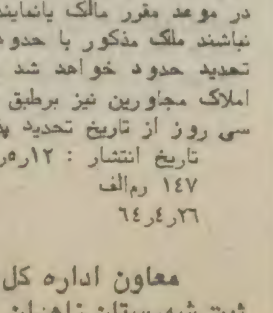 در موعد مقرر مالک یانمایند
نباشند ملک مذکور با حدو
تحدید حدود خواهد شد
املاک مجاورین نیز برطبق
سی روز از تاریخ تحدید پذ
تاریخ انتشار : ۱۲ر۵ر
۱٤۷ رمالف
۲٦ر٤ر٦٤
معاون اداره کل
ثبت شهرستان